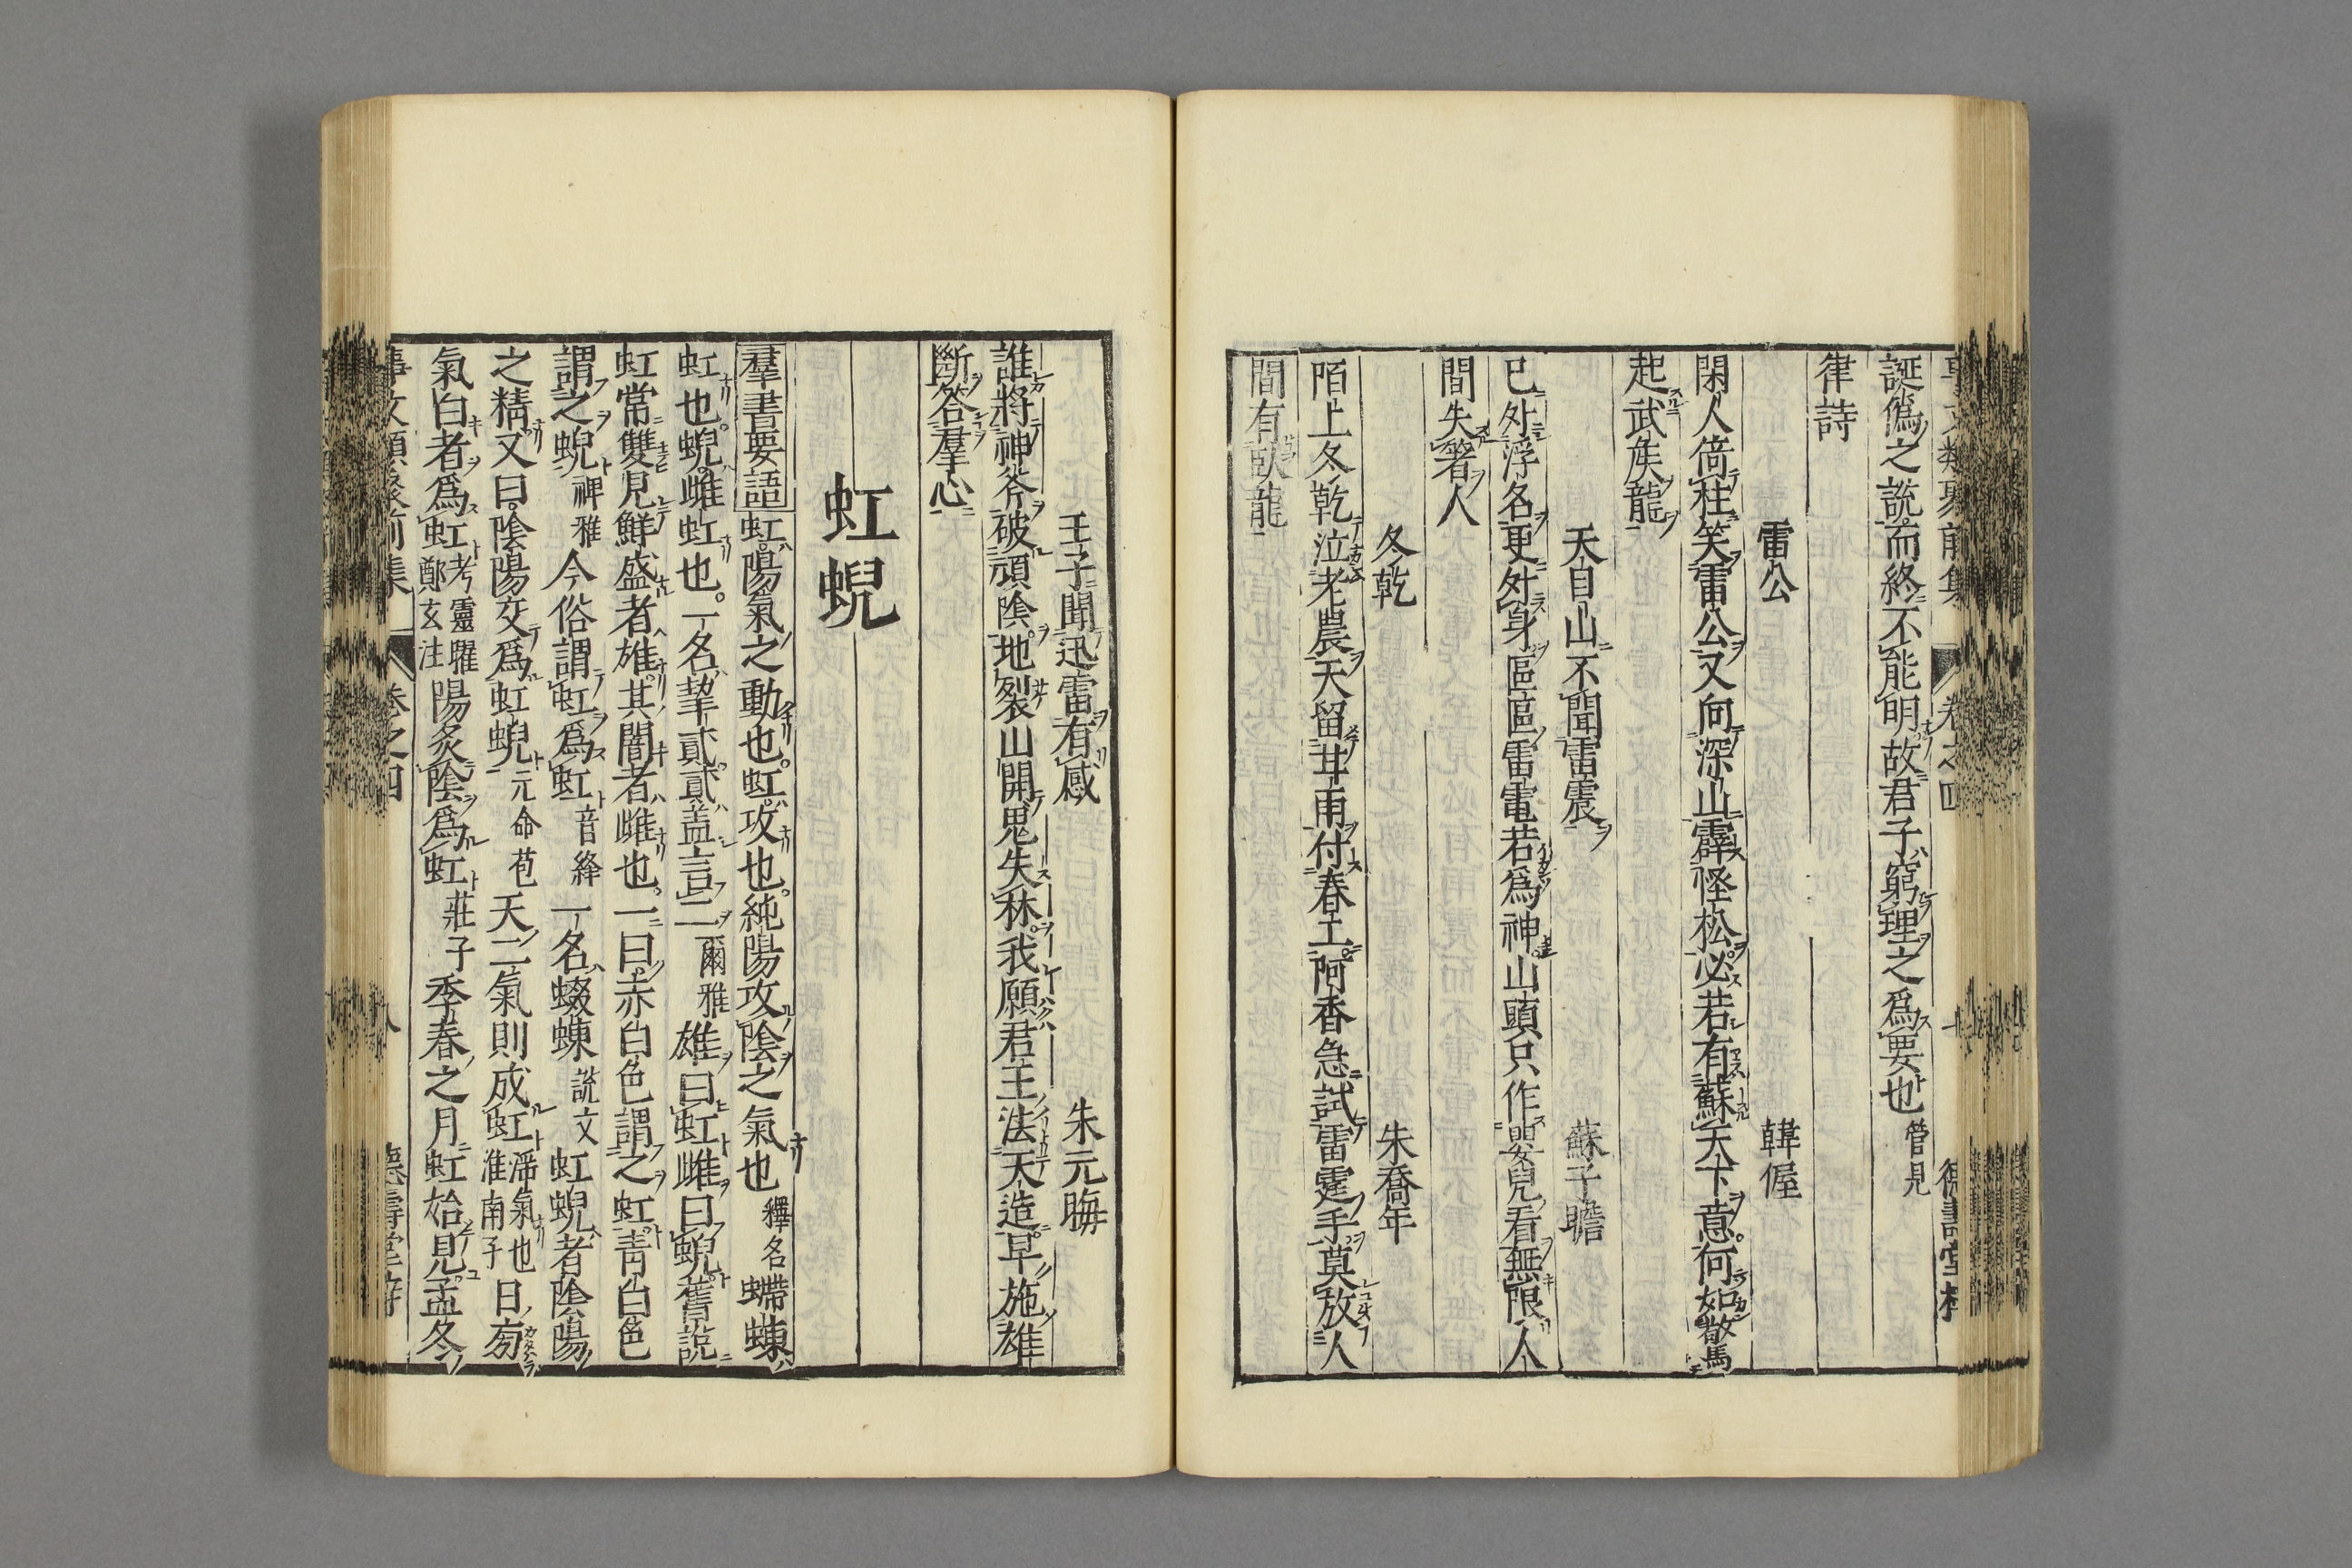 誕僞之説而終不能明故君子窮理之爲要也管見
律詩
雷公 韓偓
閑人倚柱笑雷公又向深山霹怪松必若有蘇天下意何如驚
起武侯龍
天目山不聞雷震 蘇子瞻
已外浮名更外身區區雷電若爲神山頭只作嬰兒看無限人
間失箸人
冬乾 朱喬年
陌上冬乾泣老農天留甘雨付春工阿香急試雷霆手莫放人
間有臥龍
壬子聞迅雷有感 朱元晦
誰將神斧破頑陰地裂山開鬼失林我願君王法天造早施雄
斷答羣心
虹蜺
羣書要語虹陽氣之動也虹攻也純陽攻陰之氣也釋名螮蝀
虹也蜺雌虹也一名挈貳貳盖言二爾雅雄曰虹雌曰蜺舊説
虹常雙見鮮盛者雄其闇者雌也一曰赤白色謂之虹青白色
謂之蜺裨雅今俗謂虹爲虹音絳一名蝃蝀説文虹蜺者陰陽
之精又曰陰陽交爲虹蜺元命苞天二氣則成虹滯氣也淮南子日旁
氣白者爲虹考靈曜鄭玄注陽炙陰爲虹莊子季春之月虹始見孟冬
卷之四